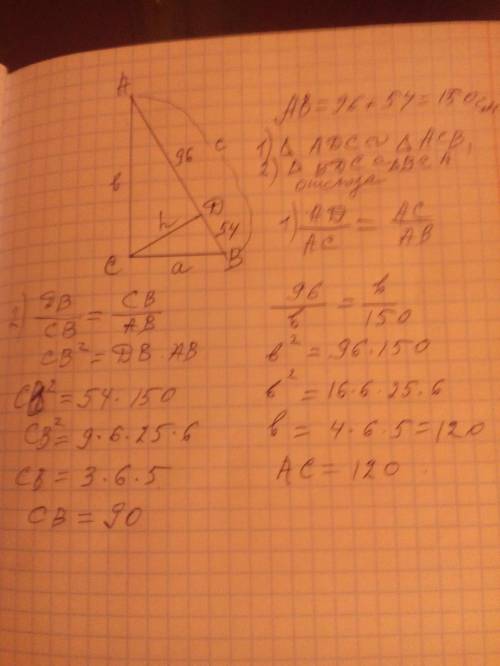 A
96
c
в
h
D
54
C
a
B
AB = 96 + 54 = 150 см
1) Δ ADC ∾ Δ ACB,
2) Δ BDC ∾ Δ BCA
отсюда
1) AD/AC = AC/AB
96/b = b/150
b² = 96 · 150
b² = 16 · 6 · 25 · 6
b = 4 · 6 · 5 = 120
AC = 120
2) DB/CB = CB/AB
CB² = DB · AB
CB² = 54 · 150
CB² = 9 · 6 · 25 · 6
CB = 3 · 6 · 5
CB = 90